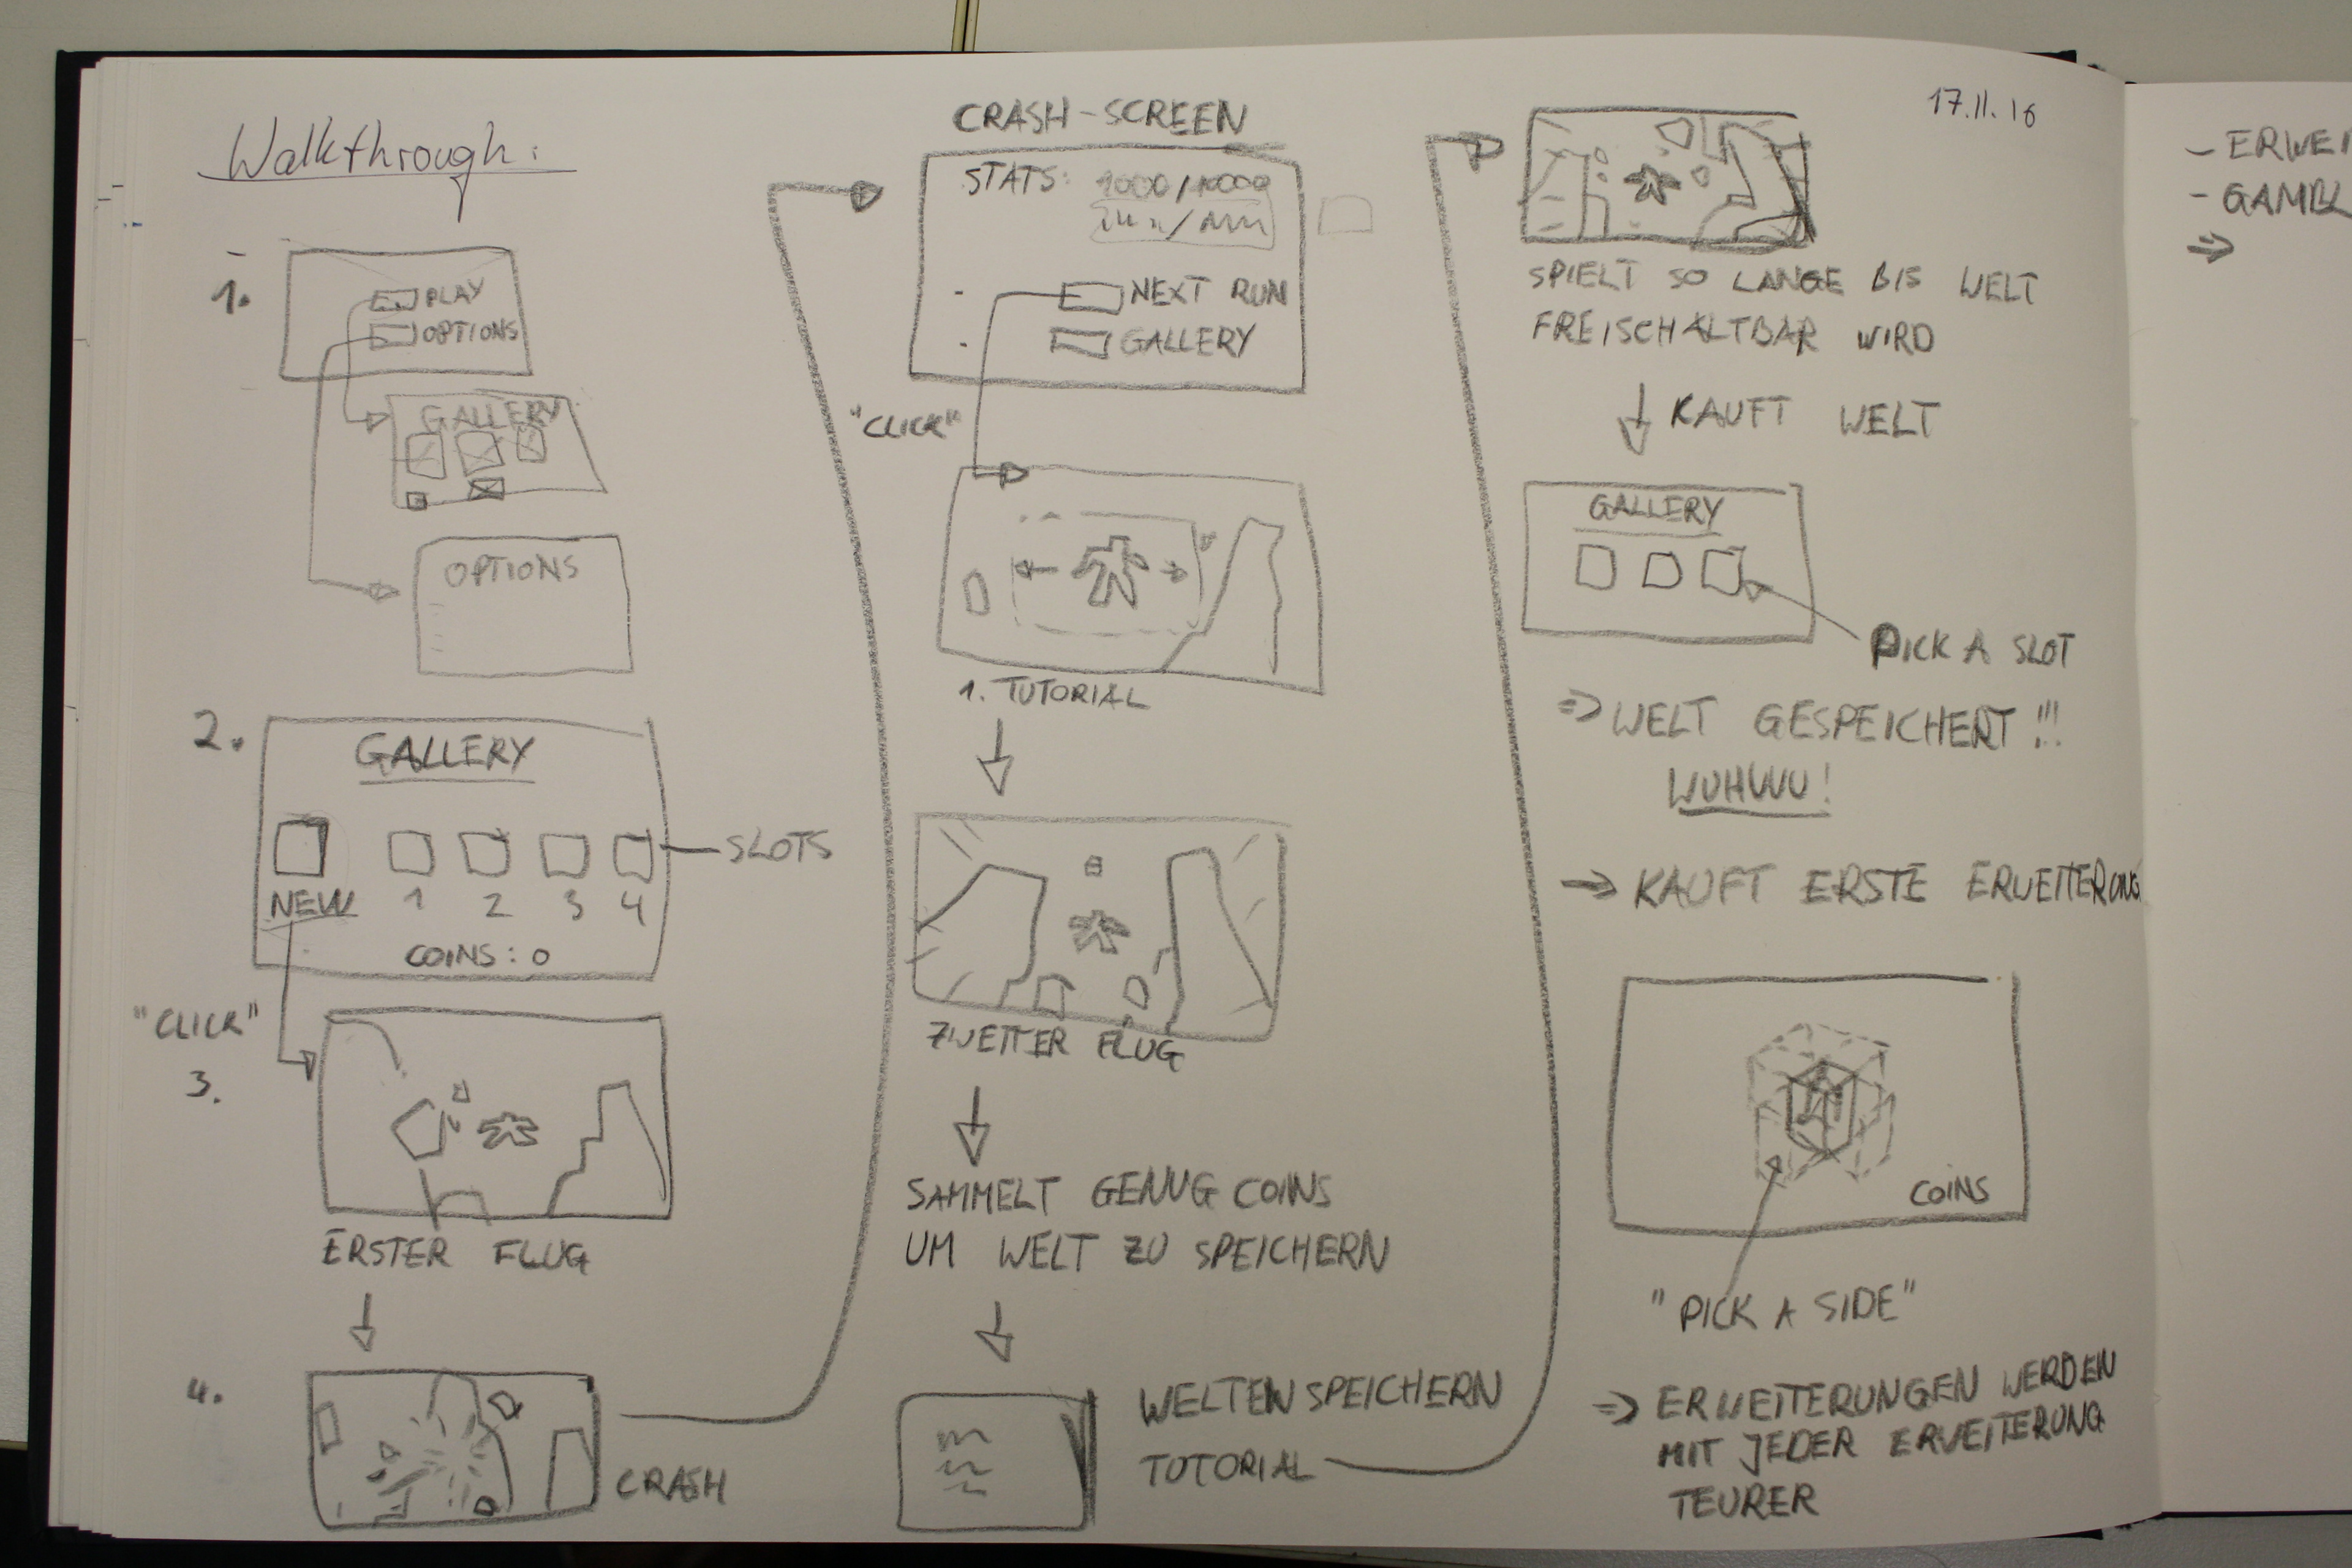 Walkthrough:
1.
PLAY
OPTIONS
GALLERY
OPTIONS
2.
GALLERY
NEW 1 2 3 4
SLOTS
COINS: 0
"CLICK"
3.
ERSTER FLUG
4.
CRASH
CRASH-SCREEN
STATS: 1000/10000
NEXT RUN
GALLERY
"CLICK"
1. TUTORIAL
ZWEITER FLUG
SAMMELT GENUG COINS
UM WELT ZU SPEICHERN
WELTEN SPEICHERN
TUTORIAL
17.11.16
SPIELT SO LANGE BIS WELT
FREISCHALTBAR WIRD
KAUFT WELT
GALLERY
PICK A SLOT
⇒ WELT GESPEICHERT!!!
WUHUUU!
→ KAUFT ERSTE ERWEITERUNG
COINS
"PICK A SIDE"
⇒ ERWEITERUNGEN WERDEN
MIT JEDER ERWEITERUNG
TEURER
- ERWEI
⇒